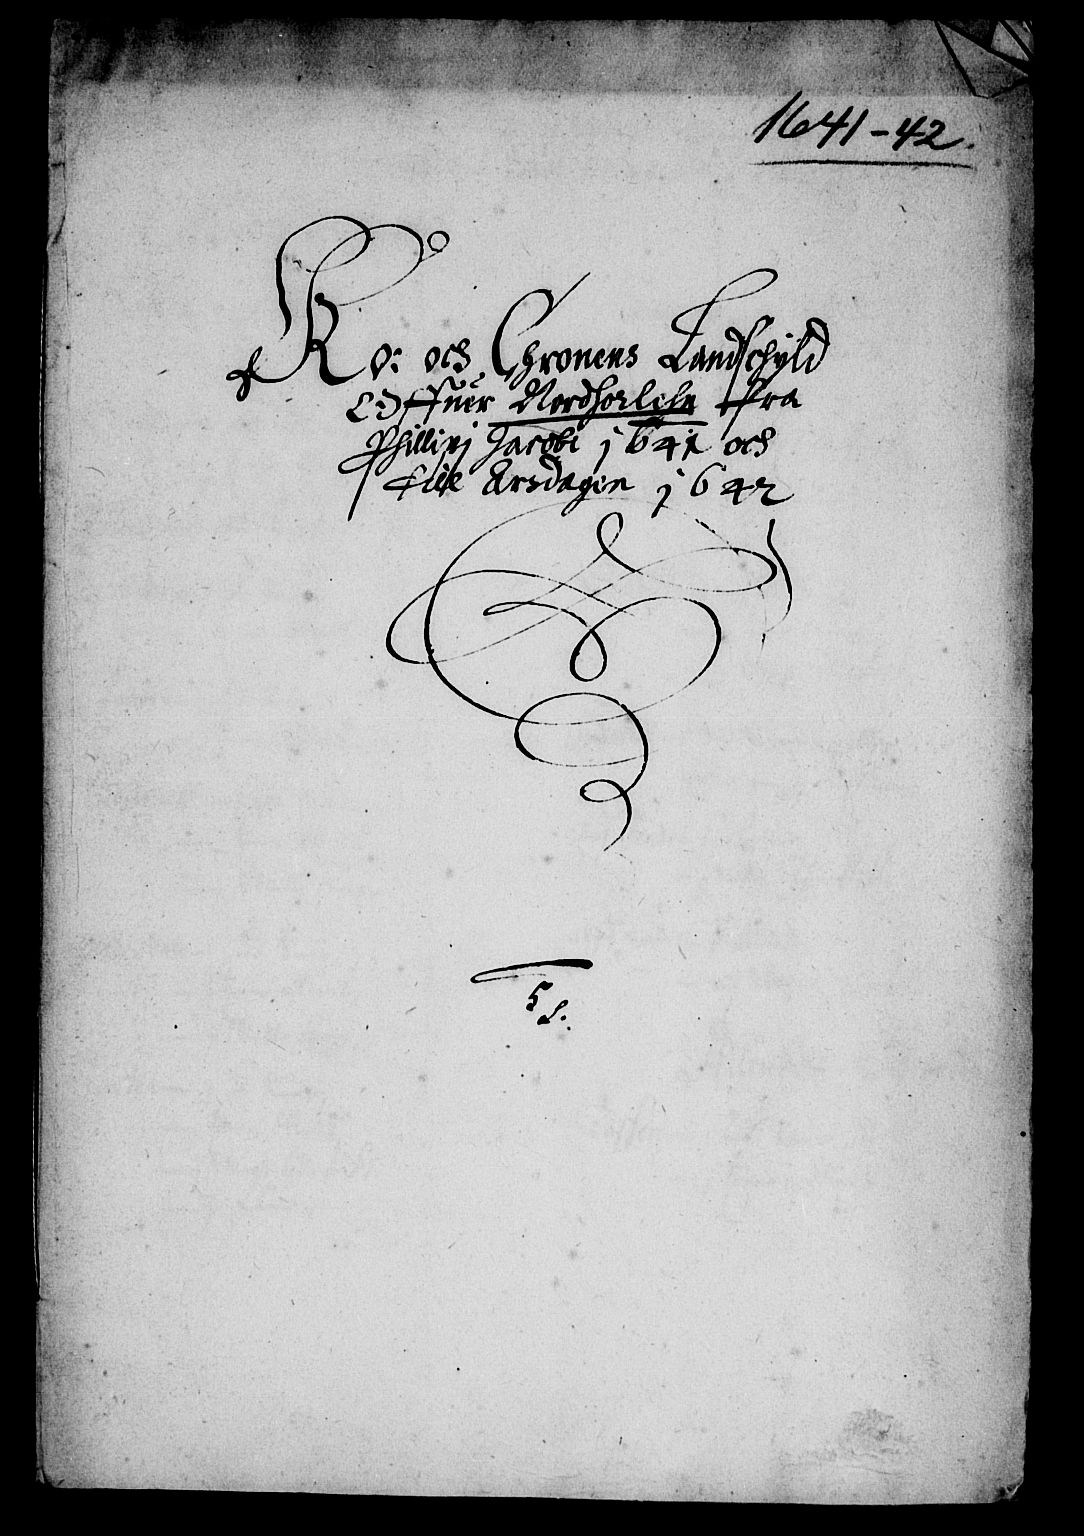 1641-42.
Ko: och Chronens Landschyld
Offuer Nordhorlehn fra
Phillipj Jacobi j641 och
till Arsdagen j642